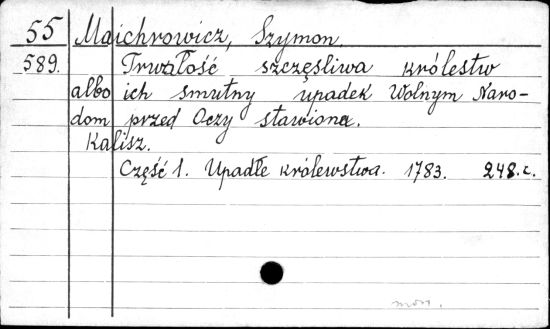 55 Maichrowicz, Szymon.
589. Trwałość szczęsliwa królestw
albo ich smutny upadek Wolnym Naro-
dom przed Oczy stawiona.
Kalisz.
Część 1. Upadłe królewstwa. 1783. 248.c.